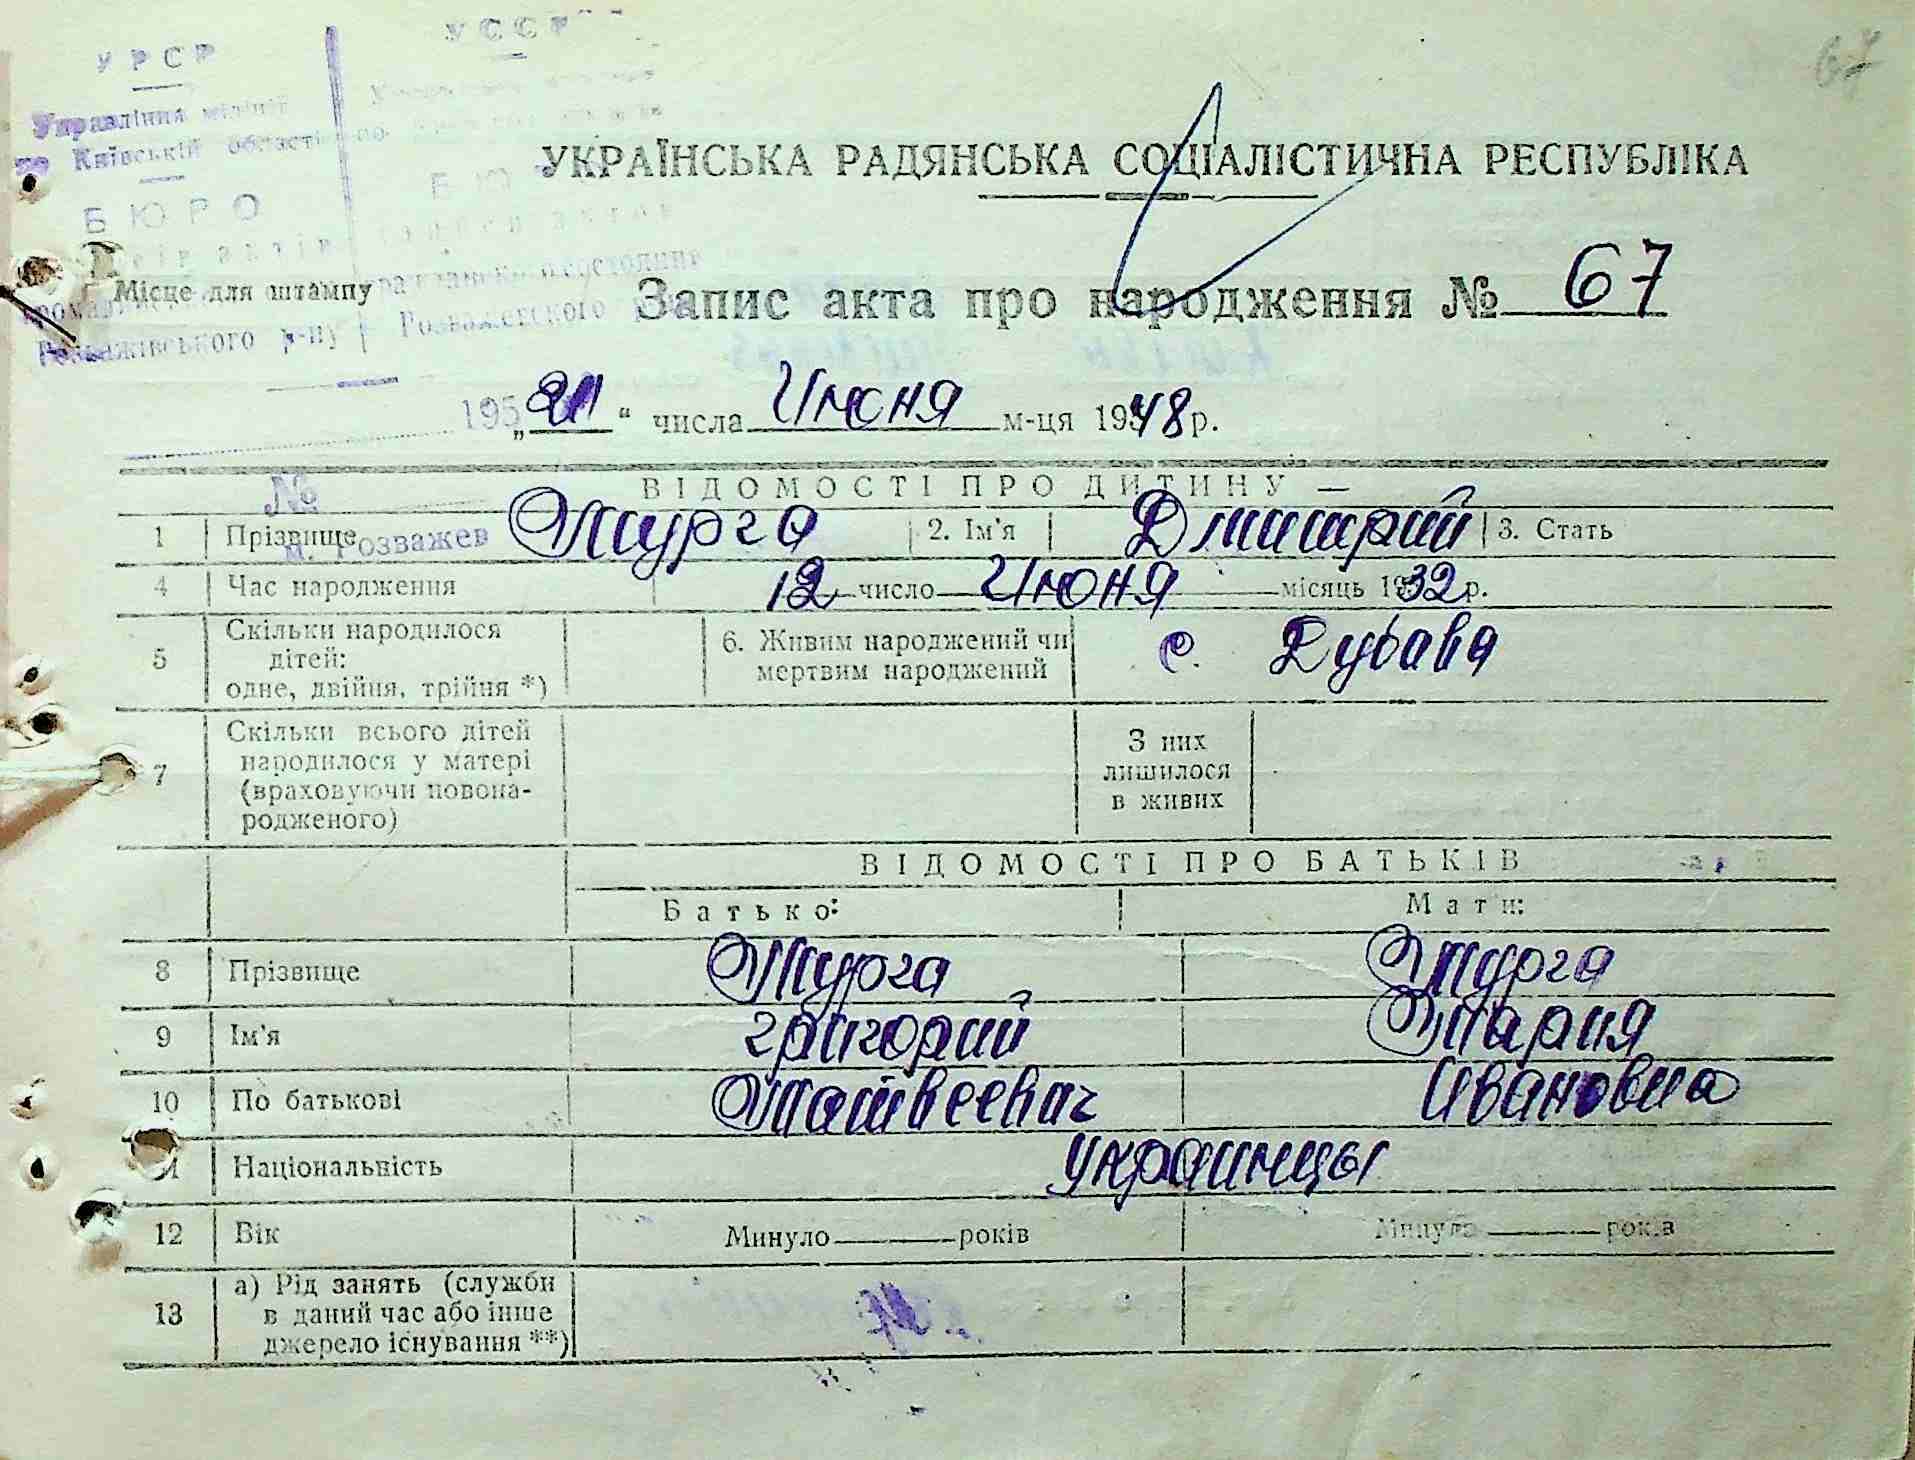 67
УРСР
УССР
Управління міліції
по Київській області
УКРАЇНСЬКА РАДЯНСЬКА СОЦІАЛІСТИЧНА РЕСПУБЛІКА
БЮРО
Місце для штампу
Запис акта про народження № 67
Розважівського р-ну Розважевского
195
„21“ числа Июня м-ця 1948 р.
№
ВІДОМОСТІ ПРО ДИТИНУ —
1 Прізвище Мурга 2. Ім'я Дмитрий 3. Стать
м. Розважев
4 Час народження 12 число Июня місяць 1932 р.
5 Скільки народилося дітей: одне, двійня, трійня *) 6. Живим народжений чи мертвим народжений с. Дубава
7 Скільки всього дітей народилося у матері (враховуючи новонародженого) З них лишилося в живих
ВІДОМОСТІ ПРО БАТЬКІВ
Батько: Мати:
8 Прізвище Мурга Мурга
9 Ім'я Григорий Мария
10 По батькові Матвеевич Ивановна
11 Національність Украинцы
12 Вік Минуло ——— років Минуло ——— років
13 а) Рід занять (служби в даний час або інше джерело існування **)